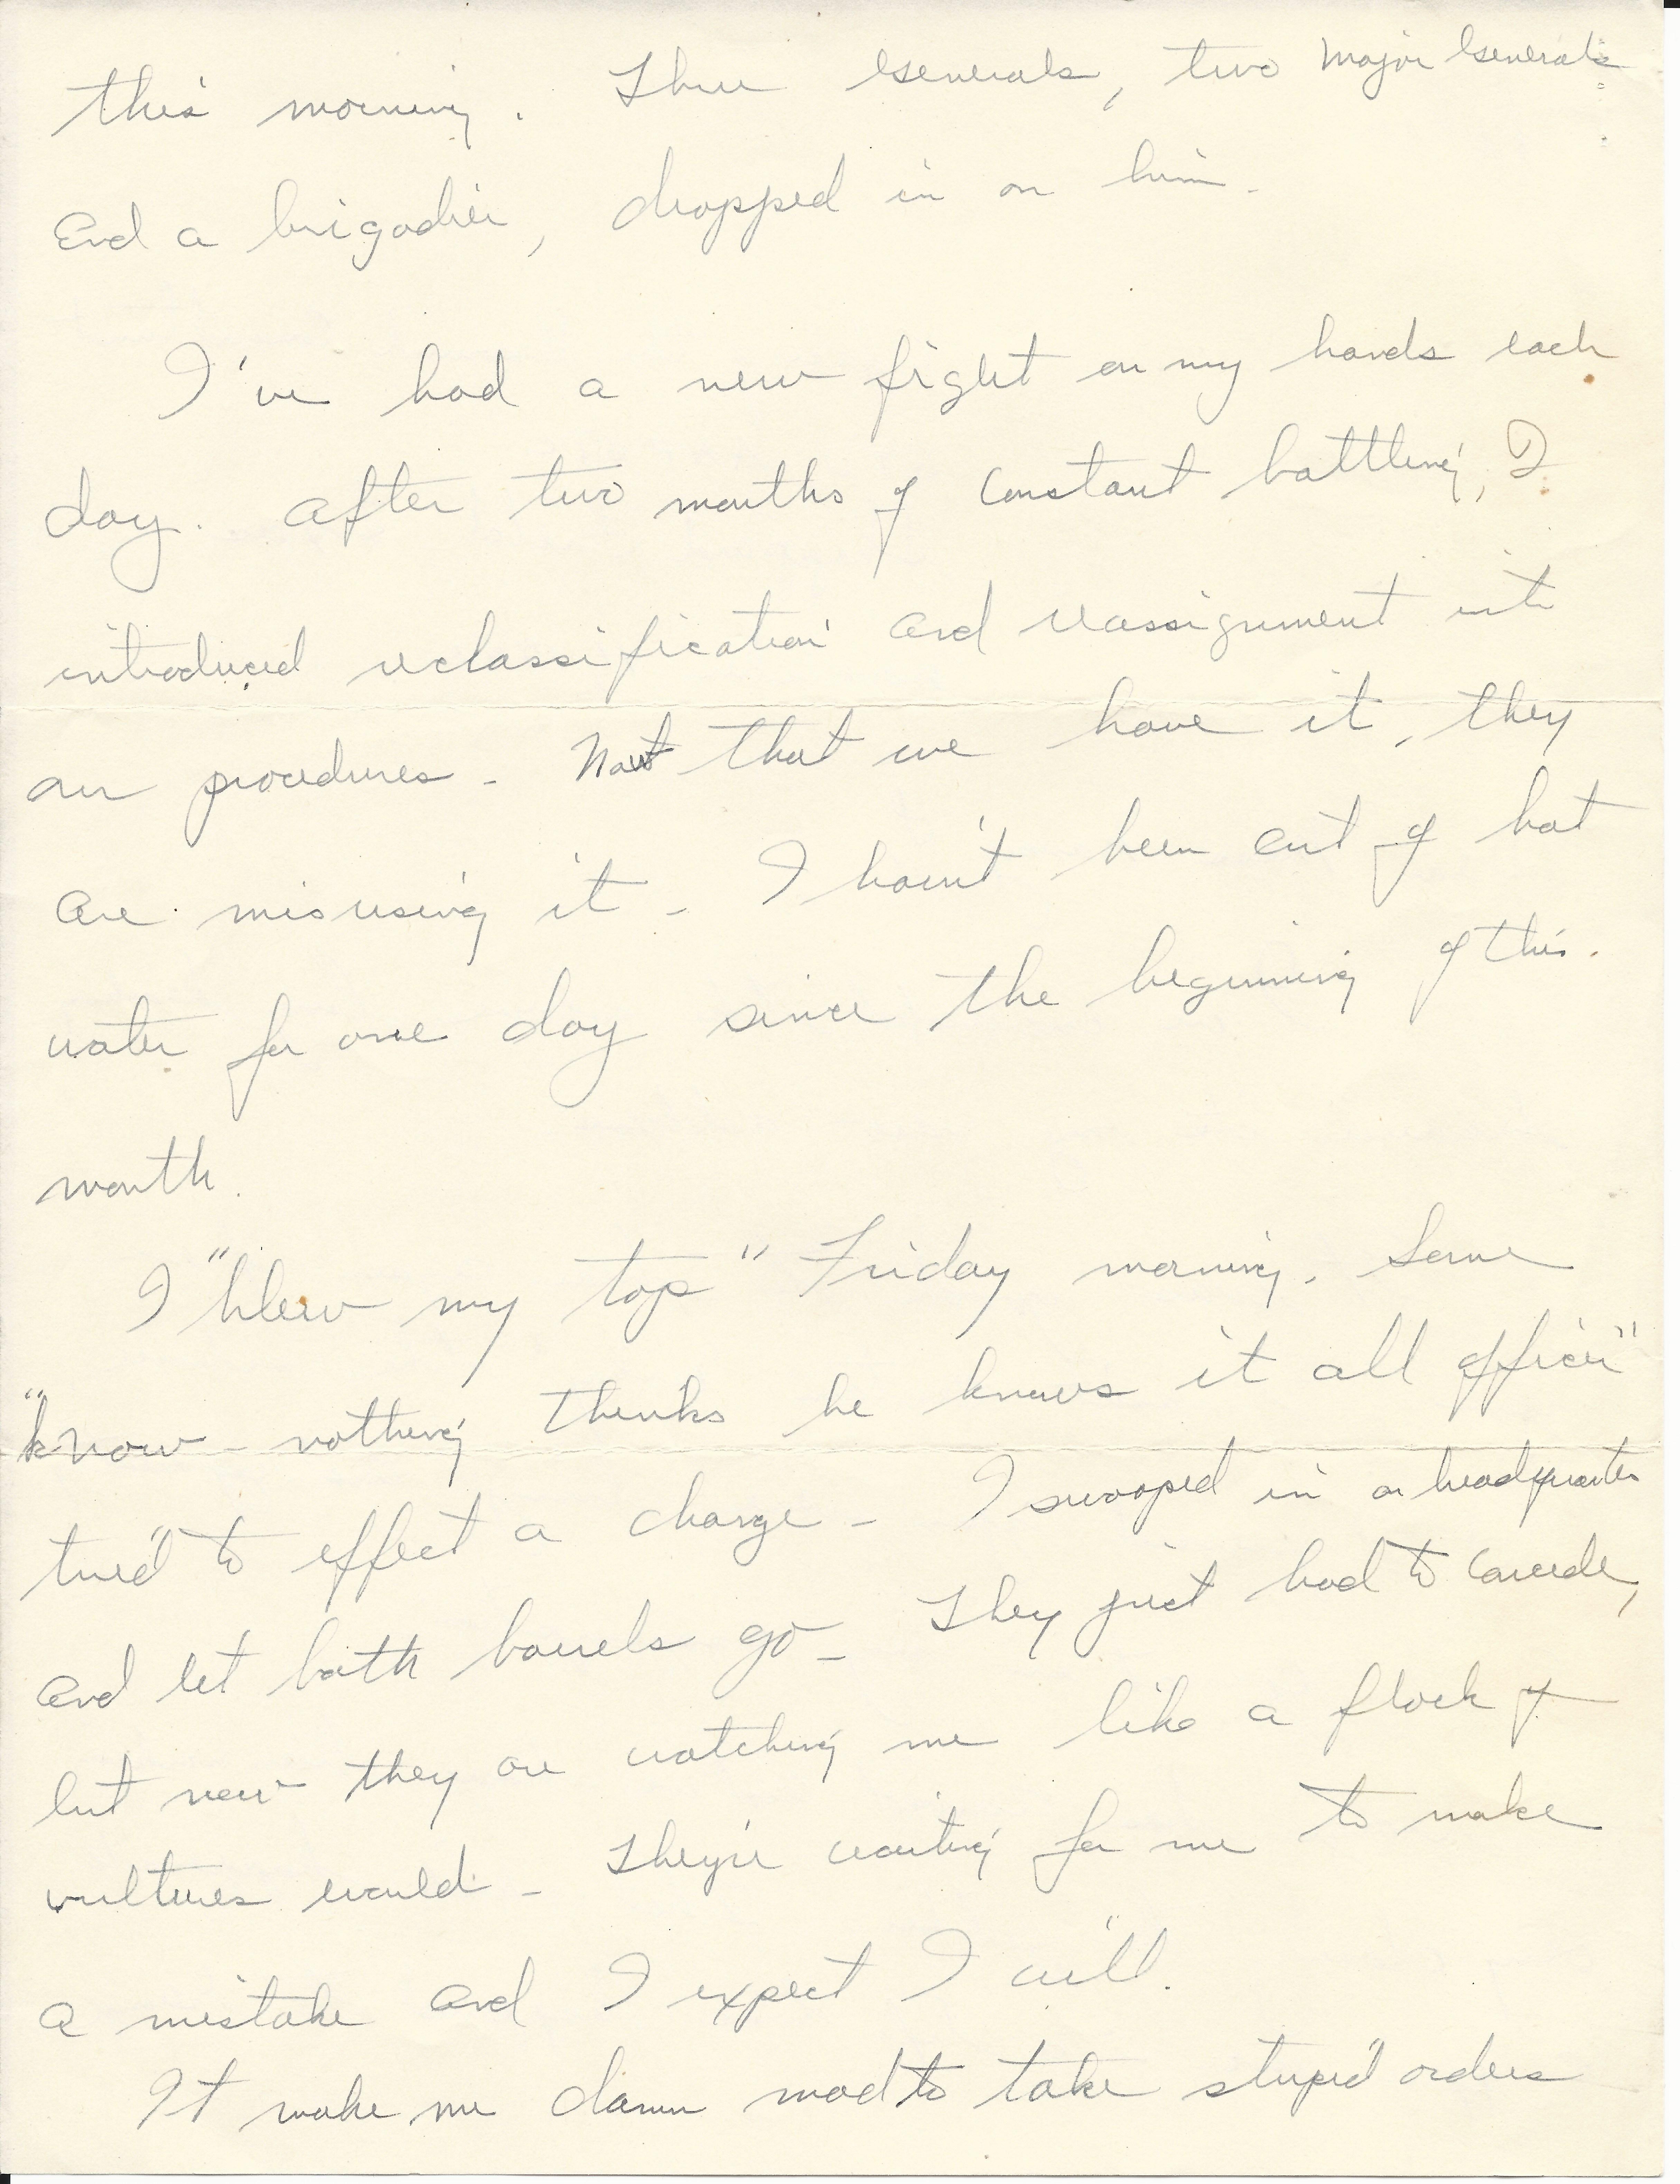 this morning. Three Generals, two Major Generals
and a brigadier, dropped in on him.
I've had a new fight on my hands each
day. After two months of constant battling, I
introduced reclassification and reassignment into
our procedures - Now that we have it, they
are misusing it - I haven't been out of hot
water for one day since the beginning of this.
month.
I "blew my top" Friday morning. Some
"know-nothing thinks he knows it all officer"
tried to effect a change - I swooped in on headquarters
and let both barrels go - They just had to concede,
but now they are watching me like a flock of
vultures would - They're waiting for me to make
a mistake and I expect I will.
It make me damn mad to take stupid orders